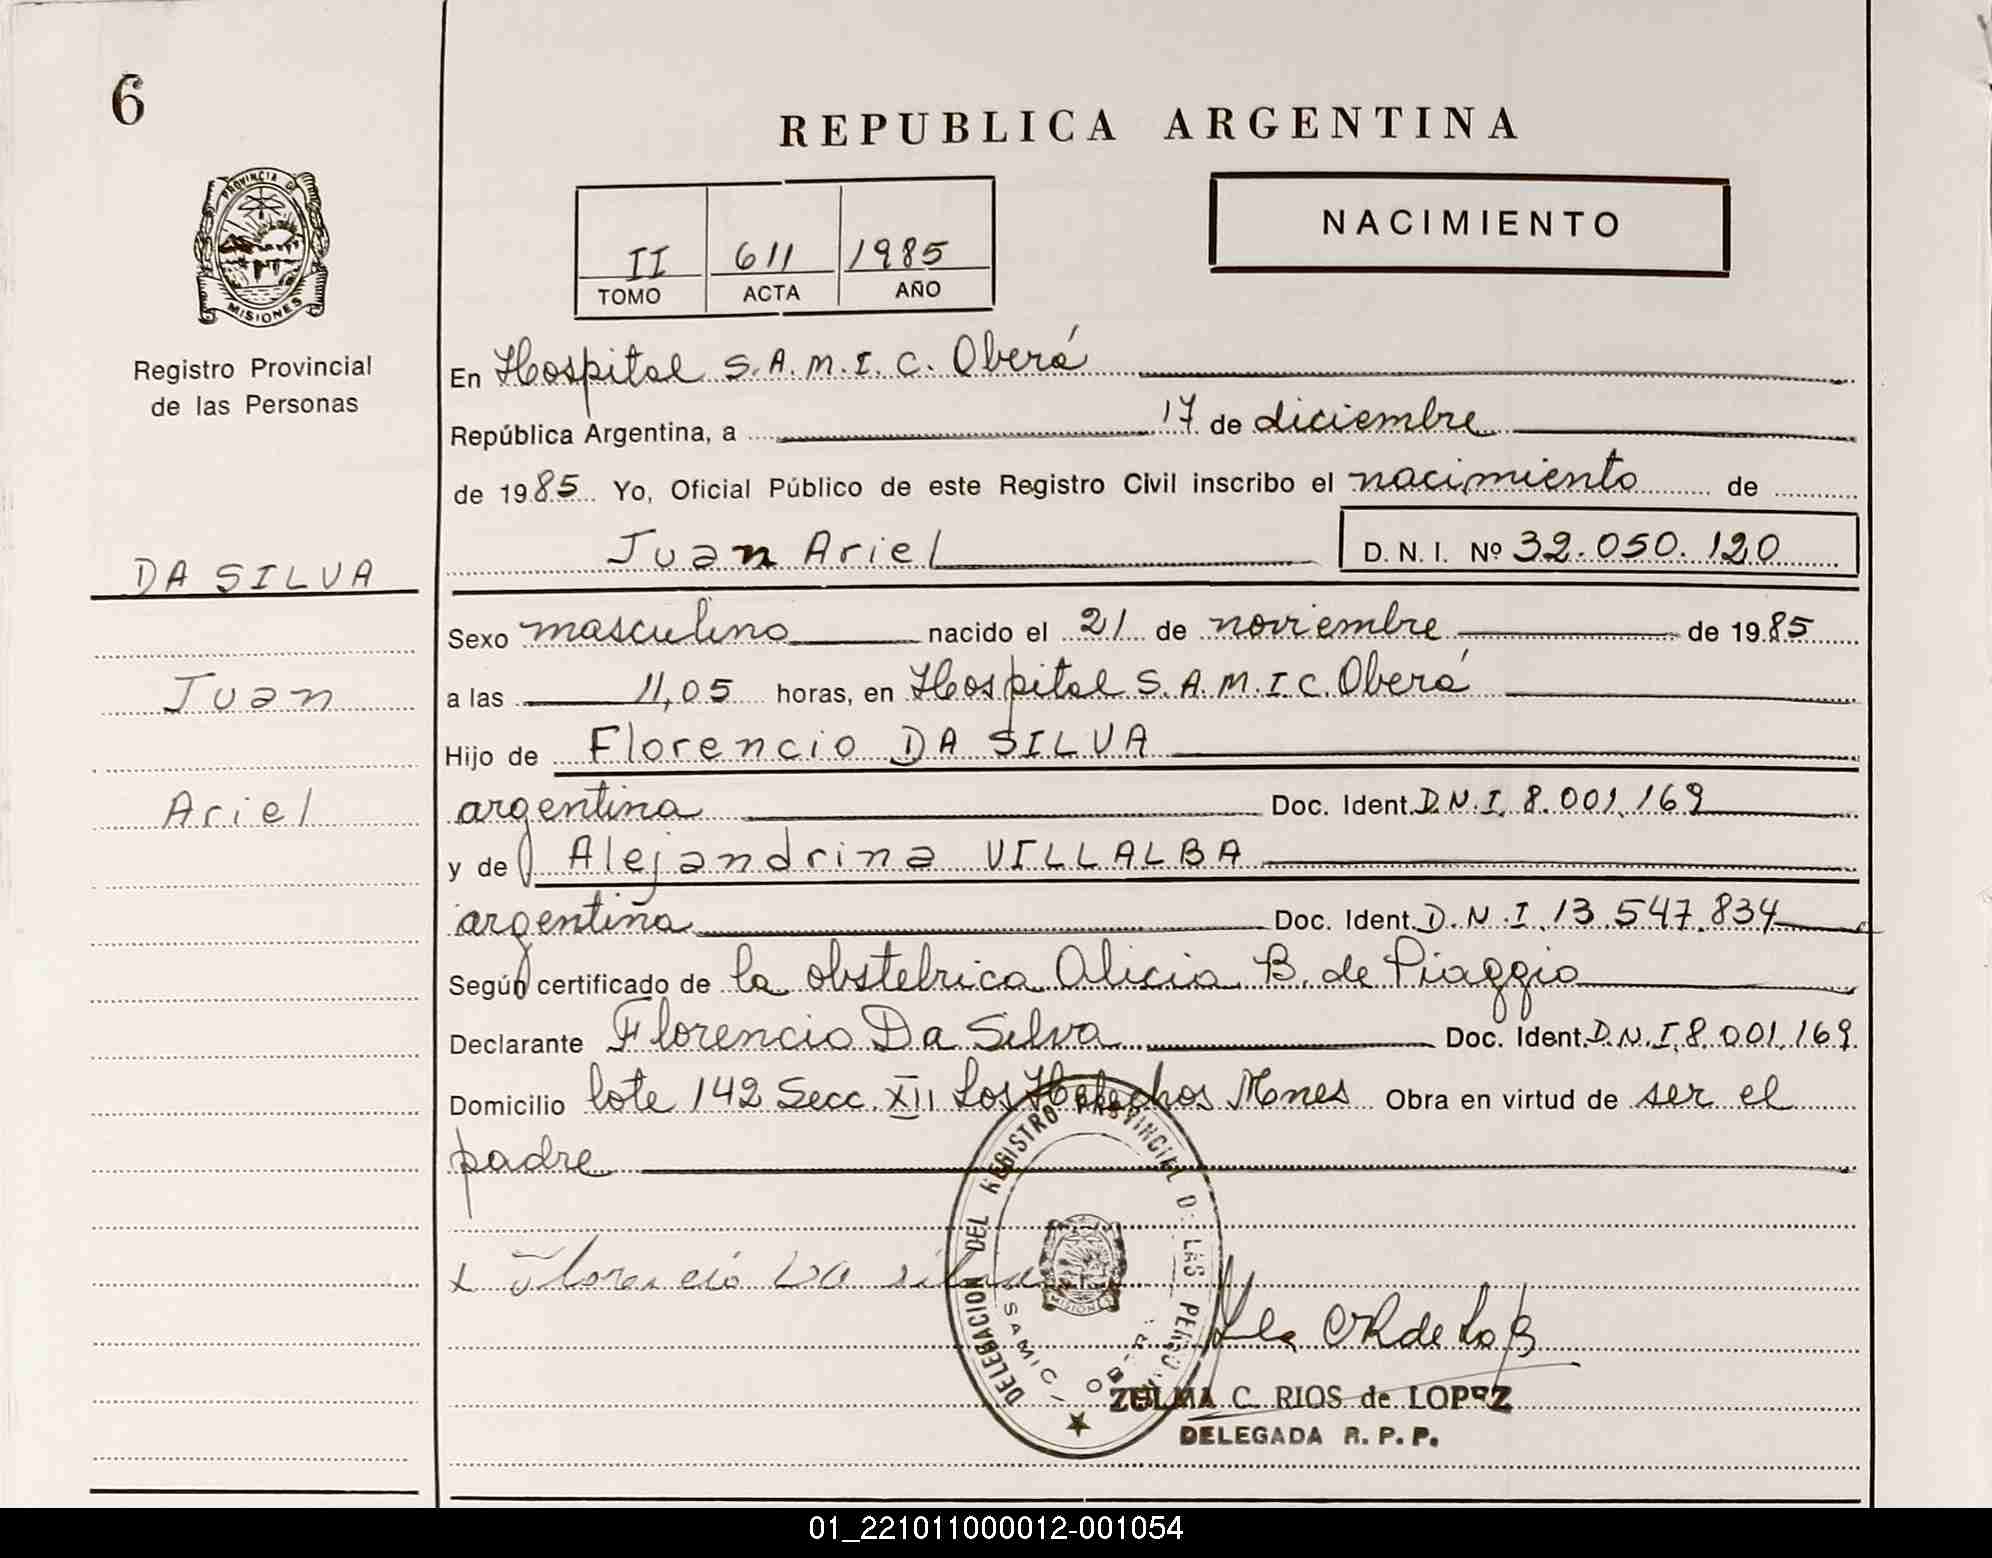 6
REPUBLICA ARGENTINA
PROVINCIA D
MISIONES
Registro Provincial
de las Personas
II 611 1985
TOMO ACTA AÑO
NACIMIENTO
En Hospital S.A.M.I.C. Oberá
República Argentina, a 17 de diciembre
de 1985 Yo, Oficial Público de este Registro Civil inscribo el nacimiento de
Juan Ariel D. N. I. Nº 32.050.120
DA SILVA
Juan
Ariel
Sexo masculino nacido el 21 de noviembre de 1985
a las 11,05 horas, en Hospital S.A.M.I.C. Oberá
Hijo de Florencio DA SILVA
argentina Doc. Ident. D.N.I. 8.001.169
y de Alejandrina VILLALBA
argentina Doc. Ident. D.N.I. 13.547.834
Según certificado de la obstetrica Alicia B. de Piaggio
Declarante Florencio Da Silva Doc. Ident. D.N.I. 8.001.169
Domicilio lote 142 Secc. XII Los Helechos Mnes Obra en virtud de ser el
padre
x Florencio Da silva
DELEGACION DEL REGISTRO PROVINCIAL DE LAS PERSO
SAMIC
MISIONES
ZULMA C. RIOS de LOPEZ
DELEGADA R. P. P.
01_221011000012-001054